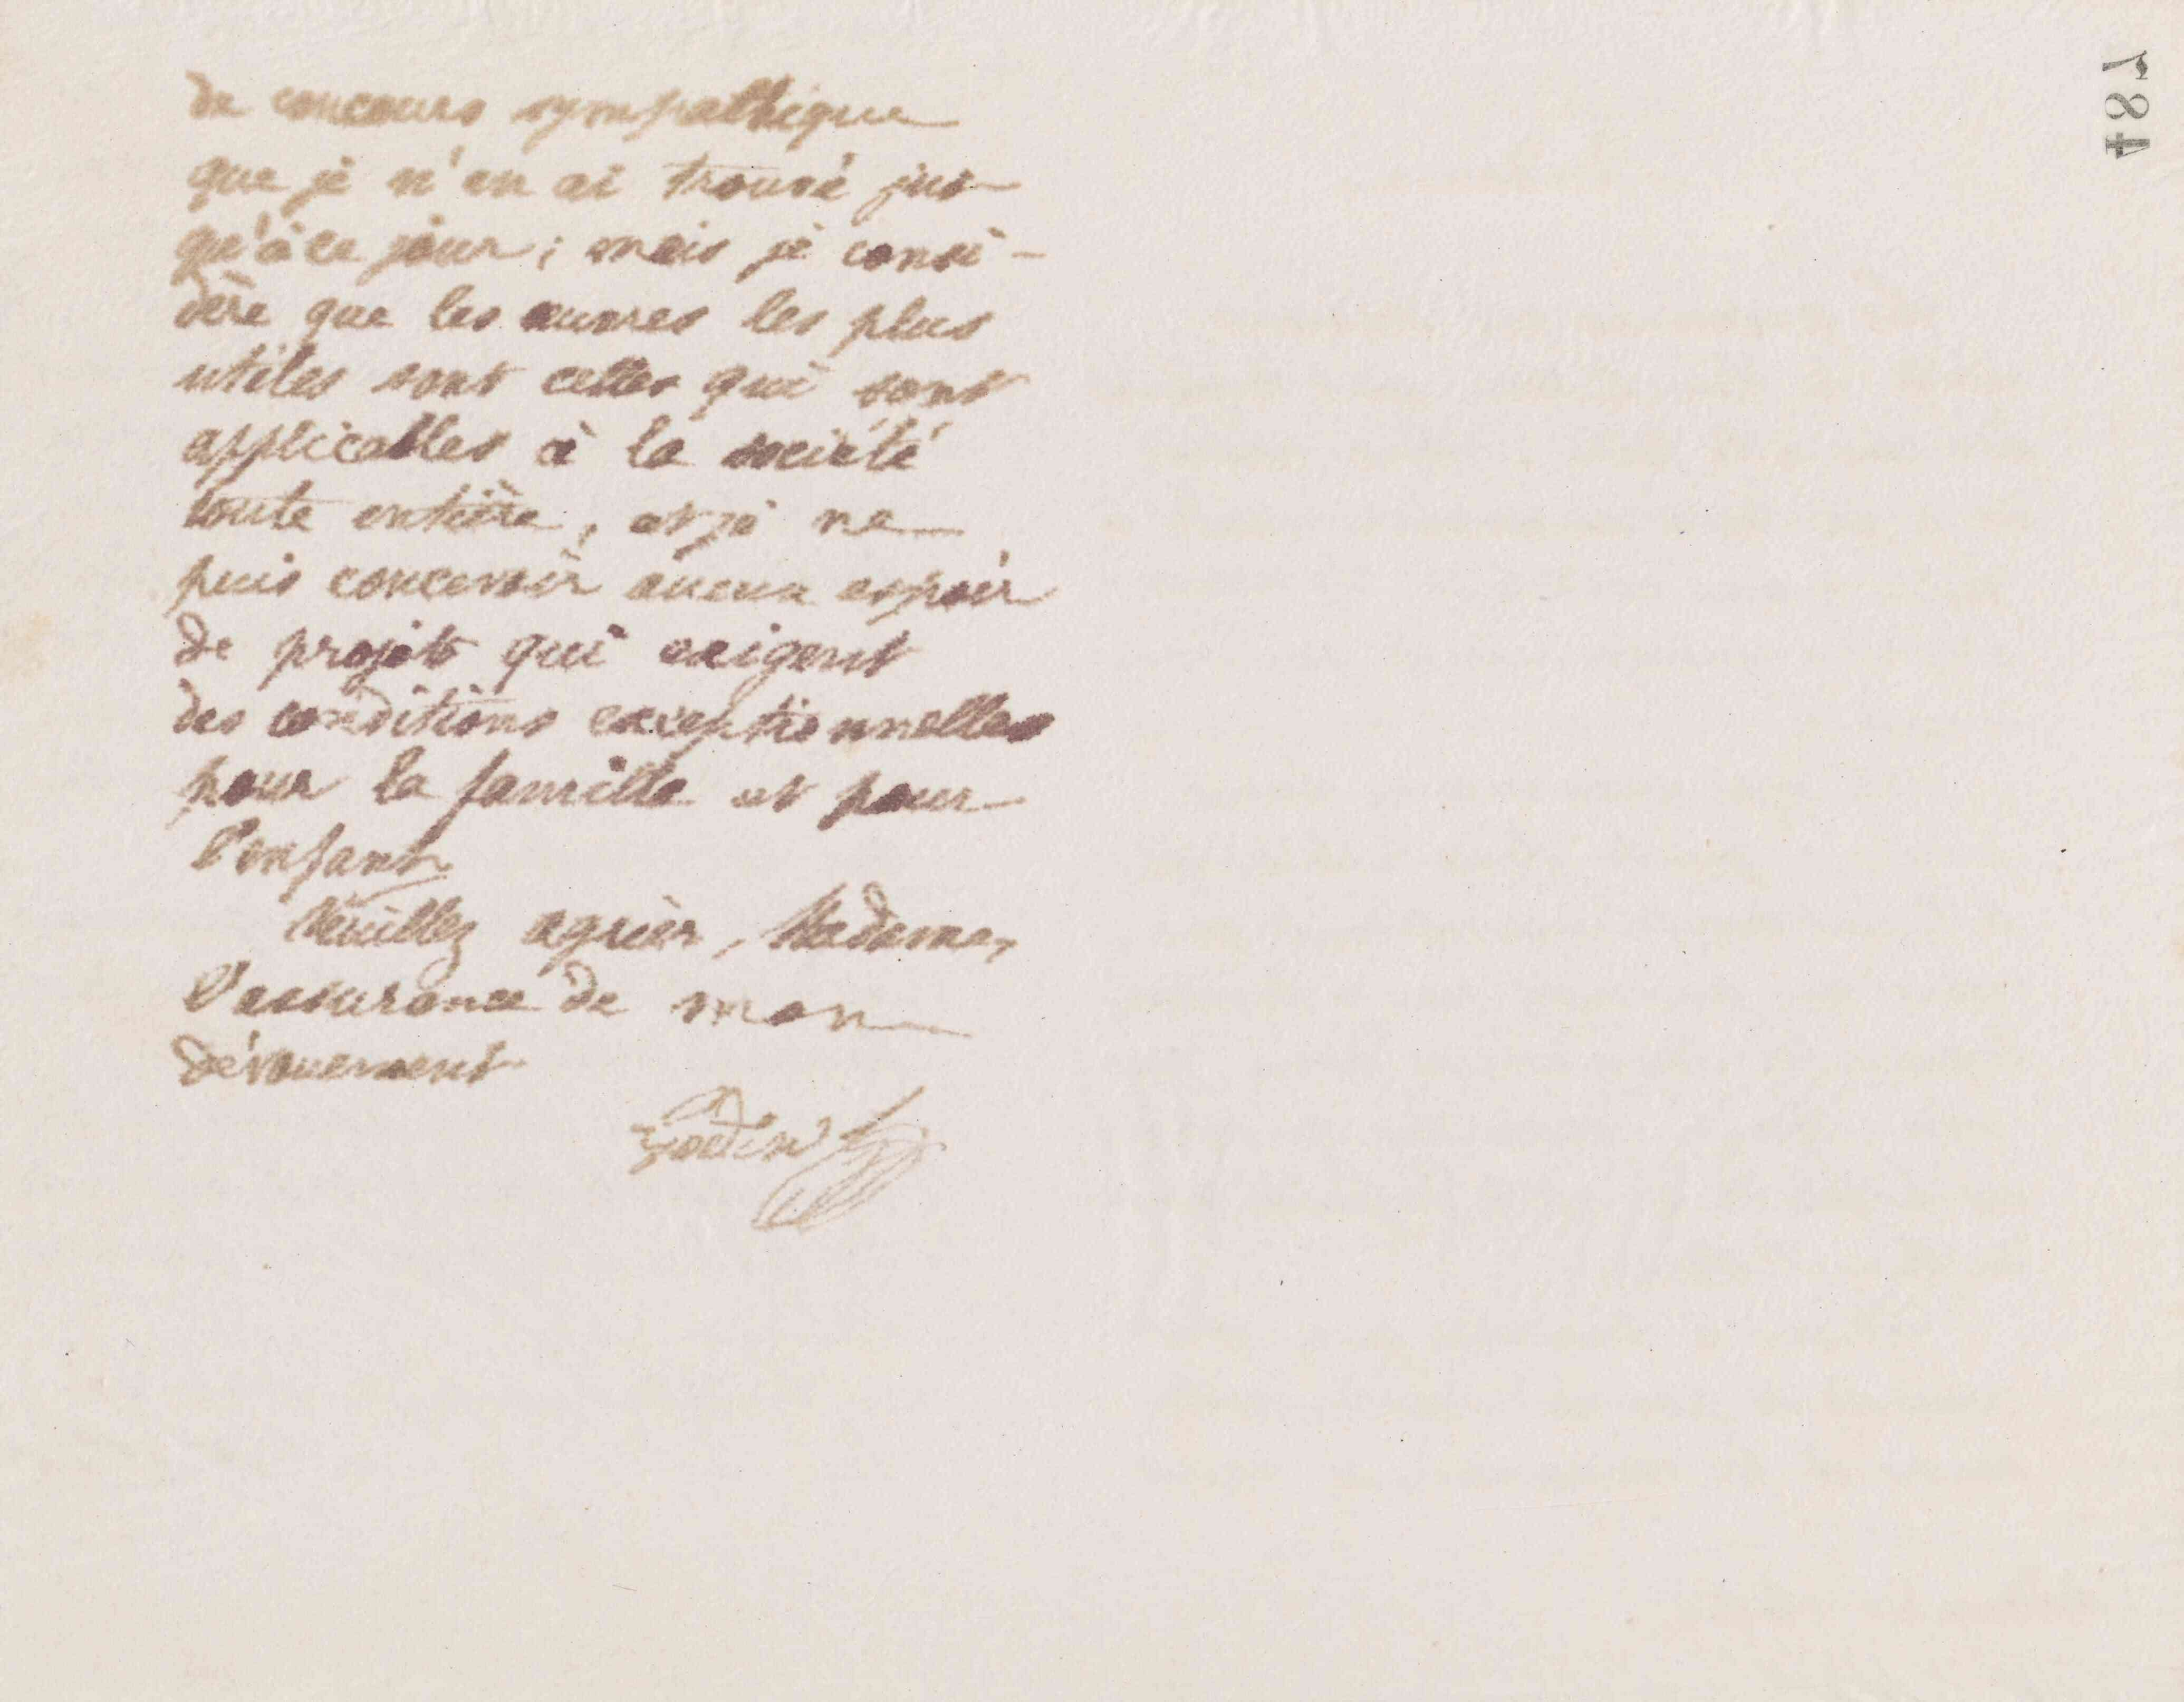 de concours sympathique
que je n'en ai trouvé jus-
qu'à ce jour ; mais je consi-
dère que les œuvres les plus
utiles sont celles qui sont
applicables à la société
toute entière, et je ne
puis concevoir aucun espoir
de projets qui exigent
des conditions exceptionnelles
pour la famille et pour
l'enfant
Veuillez agréer, Madame,
l'assurance de mon
dévouement
Godin
184